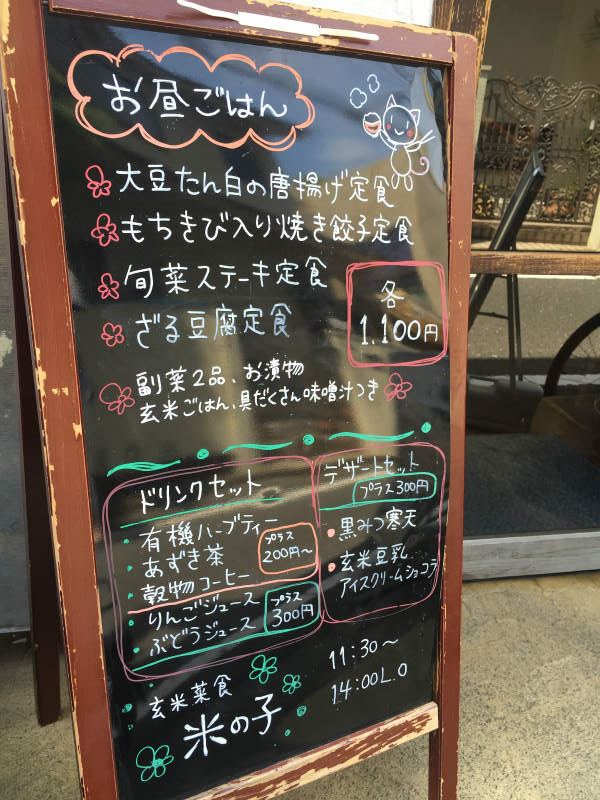 お昼ごはん
大豆たん白の唐揚げ定食
もちきび入り焼き餃子定食
旬菜ステーキ定食
ざる豆腐定食
各
1,100円
副菜2品、お漬物
玄米ごはん、具だくさん味噌汁つき
ドリンクセット
・有機ハーブティー
・あずき茶
・穀物コーヒー
プラス
200円〜
・りんごジュース
・ぶどうジュース
プラス
300円
デザートセット
プラス300円
・黒みつ寒天
・玄米豆乳
アイスクリームショコラ
・玄米菜食
米の子
11:30〜
14:00L.O